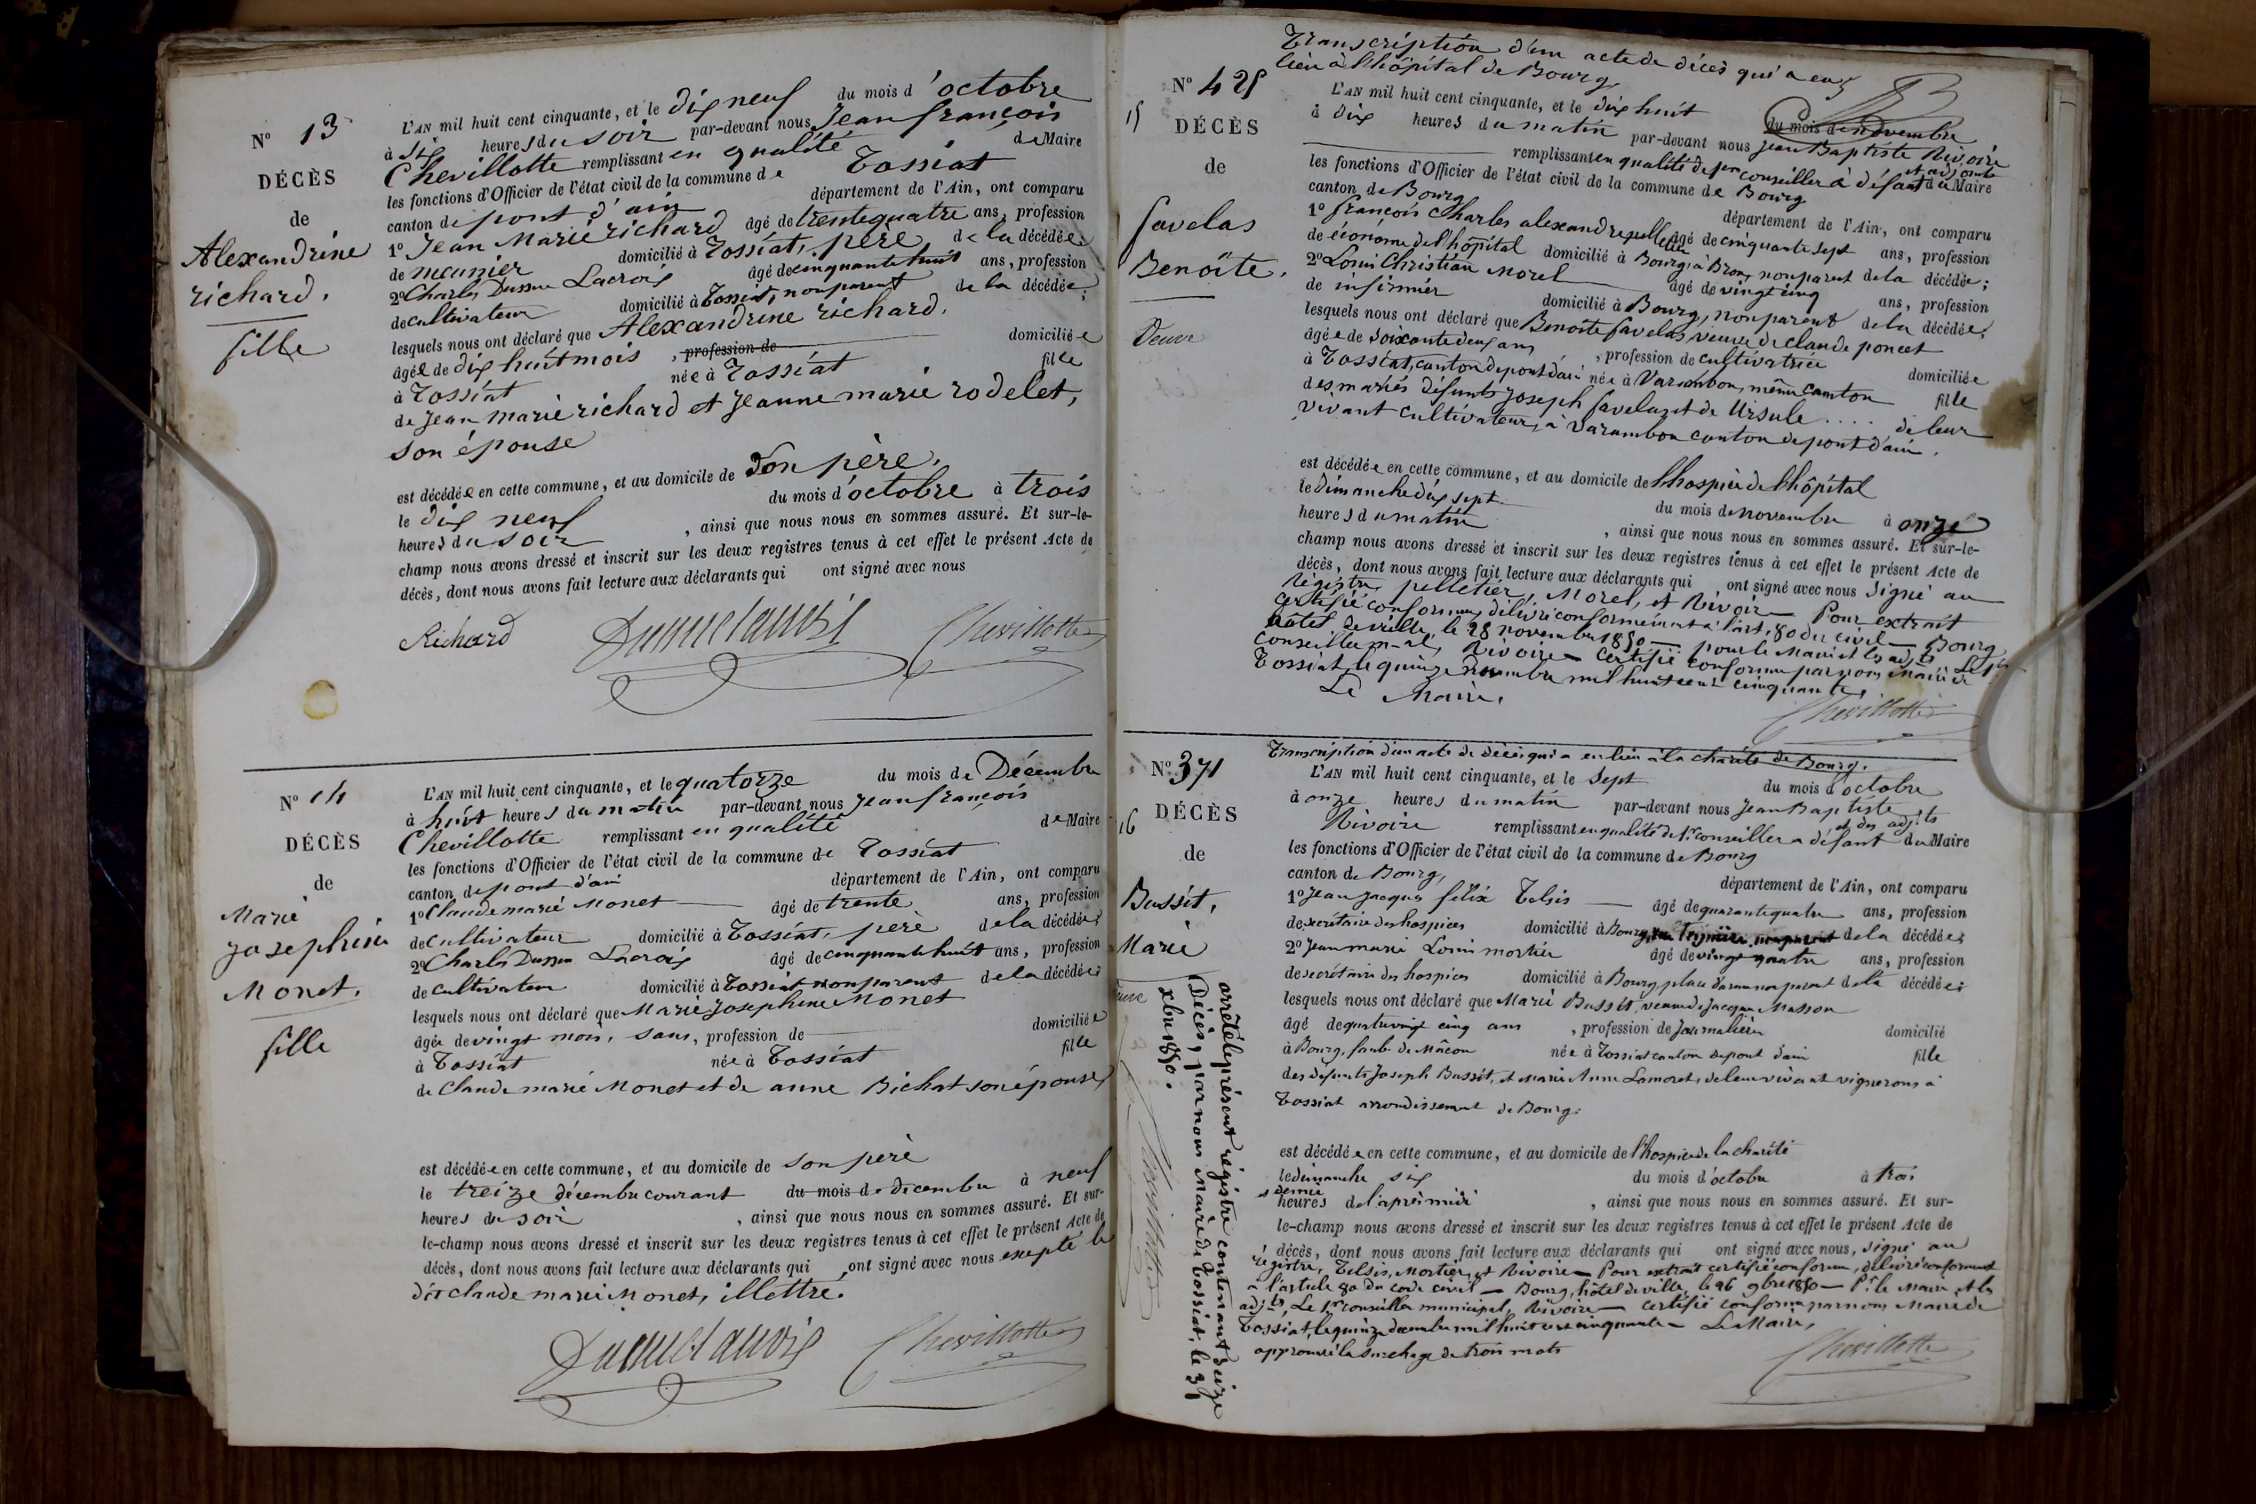 N° 13
DÉCÈS
de
Alexandrine
richard.
fille
L'AN mil huit cent cinquante, et le dix neuf du mois d'octobre
à six heures du soir par-devant nous Jean françois
Chevillotte remplissant en qualité de Maire
les fonctions d'Officier de l'état civil de la commune de Tossiat
canton de pont d'ain département de l'Ain, ont comparu
1° Jean Marie richard âgé de trente quatre ans, profession
de meunier domicilié à Tossiat, père de la décédée;
2° Charles Dussue Lacroix âgé de cinquante huit ans, profession
de cultivateur domicilié à Tossiat, non parent de la décédée;
lesquels nous ont déclaré que Alexandrine richard.
âgée de dix huit mois, profession de domiciliée
à Tossiat née à Tossiat fille
de Jean marie richard et jeanne marie rodelet,
son épouse
est décédée en cette commune, et au domicile de son père.
le dix neuf du mois d'octobre à trois
heures du soir, ainsi que nous nous en sommes assuré. Et sur-le-
champ nous avons dressé et inscrit sur les deux registres tenus à cet effet le présent Acte de
décès, dont nous avons fait lecture aux déclarants qui ont signé avec nous
Richard Chevillotte
N° 14
DÉCÈS
de
Marie
josephine
Monet.
fille
L'AN mil huit cent cinquante, et le quatorze du mois de Décembre
à huit heures du matin par-devant nous jean françois
Chevillotte remplissant en qualité de Maire
les fonctions d'Officier de l'état civil de la commune de Tossiat
canton de pont d'ain département de l'Ain, ont comparu
1° Claude marie Monet âgé de trente ans, profession
de cultivateur domicilié à Tossiat, père de la décédée;
2° Charles Dussue Lacroix âgé de cinquante huit ans, profession
de cultivateur domicilié à Tossiat non parent de la décédée;
lesquels nous ont déclaré que Marie Josephine Monet
âgée de vingt mois, sans, profession de domiciliée
à Tossiat née à Tossiat fille
de Claude marie Monet et de anne Bichat son épouse,
est décédée en cette commune, et au domicile de son père
le treize décembre courant du mois de decembre à neuf
heures du soir, ainsi que nous nous en sommes assuré. Et sur-
le-champ nous avons dressé et inscrit sur les deux registres tenus à cet effet le présent Acte de
décès, dont nous avons fait lecture aux déclarants qui ont signé avec nous excepté le
dit claude marie Monet, illettré.
Chevillotte
Transcription d'un acte de décès qui a eu
lieu à l'hôpital de Bourg
N° 425
15
DÉCÈS
de
favelas
Benoîte.
Veuve
L'AN mil huit cent cinquante, et le dix huit du mois de novembre
à dix heures du matin par-devant nous jean Baptiste Rivoire
remplissant en qualité de 1er conseiller à défaut du Maire et adjoints
les fonctions d'Officier de l'état civil de la commune de Bourg
canton de Bourg département de l'Ain, ont comparu
1° françois Charles alexandre pelletier âgé de cinquante sept ans, profession
de économe de l'hôpital domicilié à Bourg, à Brou, non parent de la décédée;
2° Louis Christian Morel âgé de vingt cinq ans, profession
de infirmier domicilié à Bourg, non parent de la décédée,
lesquels nous ont déclaré que Benoîte favelas, veuve de claude poncet
âgée de soixante deux ans, profession de cultivatrice domiciliée
à Tossiat, canton de pont d'ain née à Varambon, même canton fille
des mariés défunts joseph favelas et de Ursule .... de leur
vivant cultivateurs, à Varambon canton de pont d'ain.
est décédée en cette commune, et au domicile de l'hospice de l'hôpital
le dimanche dix sept du mois de novembre à onze
heures du matin, ainsi que nous nous en sommes assuré. Et sur-le-
champ nous avons dressé et inscrit sur les deux registres tenus à cet effet le présent Acte de
décès, dont nous avons fait lecture aux déclarants qui ont signé avec nous signé au
régistre pelletier, Morel, et Rivoire — Pour extrait
certifié conforme, délivré conformément à l'art. 80 du civil — Bourg,
hôtel de ville, le 28 novembre 1850 — pour le Maire et les adjts Le 1er
conseiller m-al, Rivoire — certifié conforme par nous Maire de
Tossiat, le quinze mil huit cent cinquante,
Le Maire,
Chevillotte
Transcription d'un acte de décès qui a eu lieu à la charité de Bourg.
N° 371
16
DÉCÈS
de
Bussit,
Marie
Veuve
L'AN mil huit cent cinquante, et le sept du mois d'octobre
à onze heures du matin par-devant nous jean Baptiste
Rivoire remplissant en qualité de 1er conseiller a défaut du Maire et des adjts
les fonctions d'Officier de l'état civil de la commune de Bourg
canton de Bourg, département de l'Ain, ont comparu
1° jean jacques félix Telsis âgé de quarante quatre ans, profession
de secrétaire des hospices domicilié à Bourg, non parent de la décédée;
2° jean marie Louis mortier âgé de vingt quatre ans, profession
de secrétaire des hospices domicilié à Bourg, place non parent de la décédée;
lesquels nous ont déclaré que Marie Bussit, veuve de jacques Masson
âgé de quatre vingt cinq ans, profession de journalière domicilié
à Bourg, faub. de Mâcon née à Tossiat canton de pont d'ain fille
des défunts joseph Bussit, et marie Anne Lamoret, de leur vivant vignerons à
Tossiat arrondissement de Bourg.
est décédée en cette commune, et au domicile de l'hospice de la charité
le dimanche six du mois d'octobre à trois
heures et demie de l'après midi, ainsi que nous nous en sommes assuré. Et sur-
le-champ nous avons dressé et inscrit sur les deux registres tenus à cet effet le présent Acte de
décès, dont nous avons fait lecture aux déclarants qui ont signé avec nous, signé au
régistre, Telsis, Mortier, et Rivoire — Pour extrait certifié conforme, délivré conformément
à l'article 80 du code civil — Bourg, hôtel de ville, le 26 9bre 1850 — Pr. le Maire et les
adjts, Le 1er conseiller municipal, Rivoire — certifié conforme par nous Maire de
Tossiat, le quinze decembre mil huit cent cinquante — Le Maire,
approuvé la surcharge de trois mots
Chevillotte
arrêté le présent régistre contenant seize
Décès, par nous Maire de Tossiat, le 31
xbre 1850.
Chevillotte